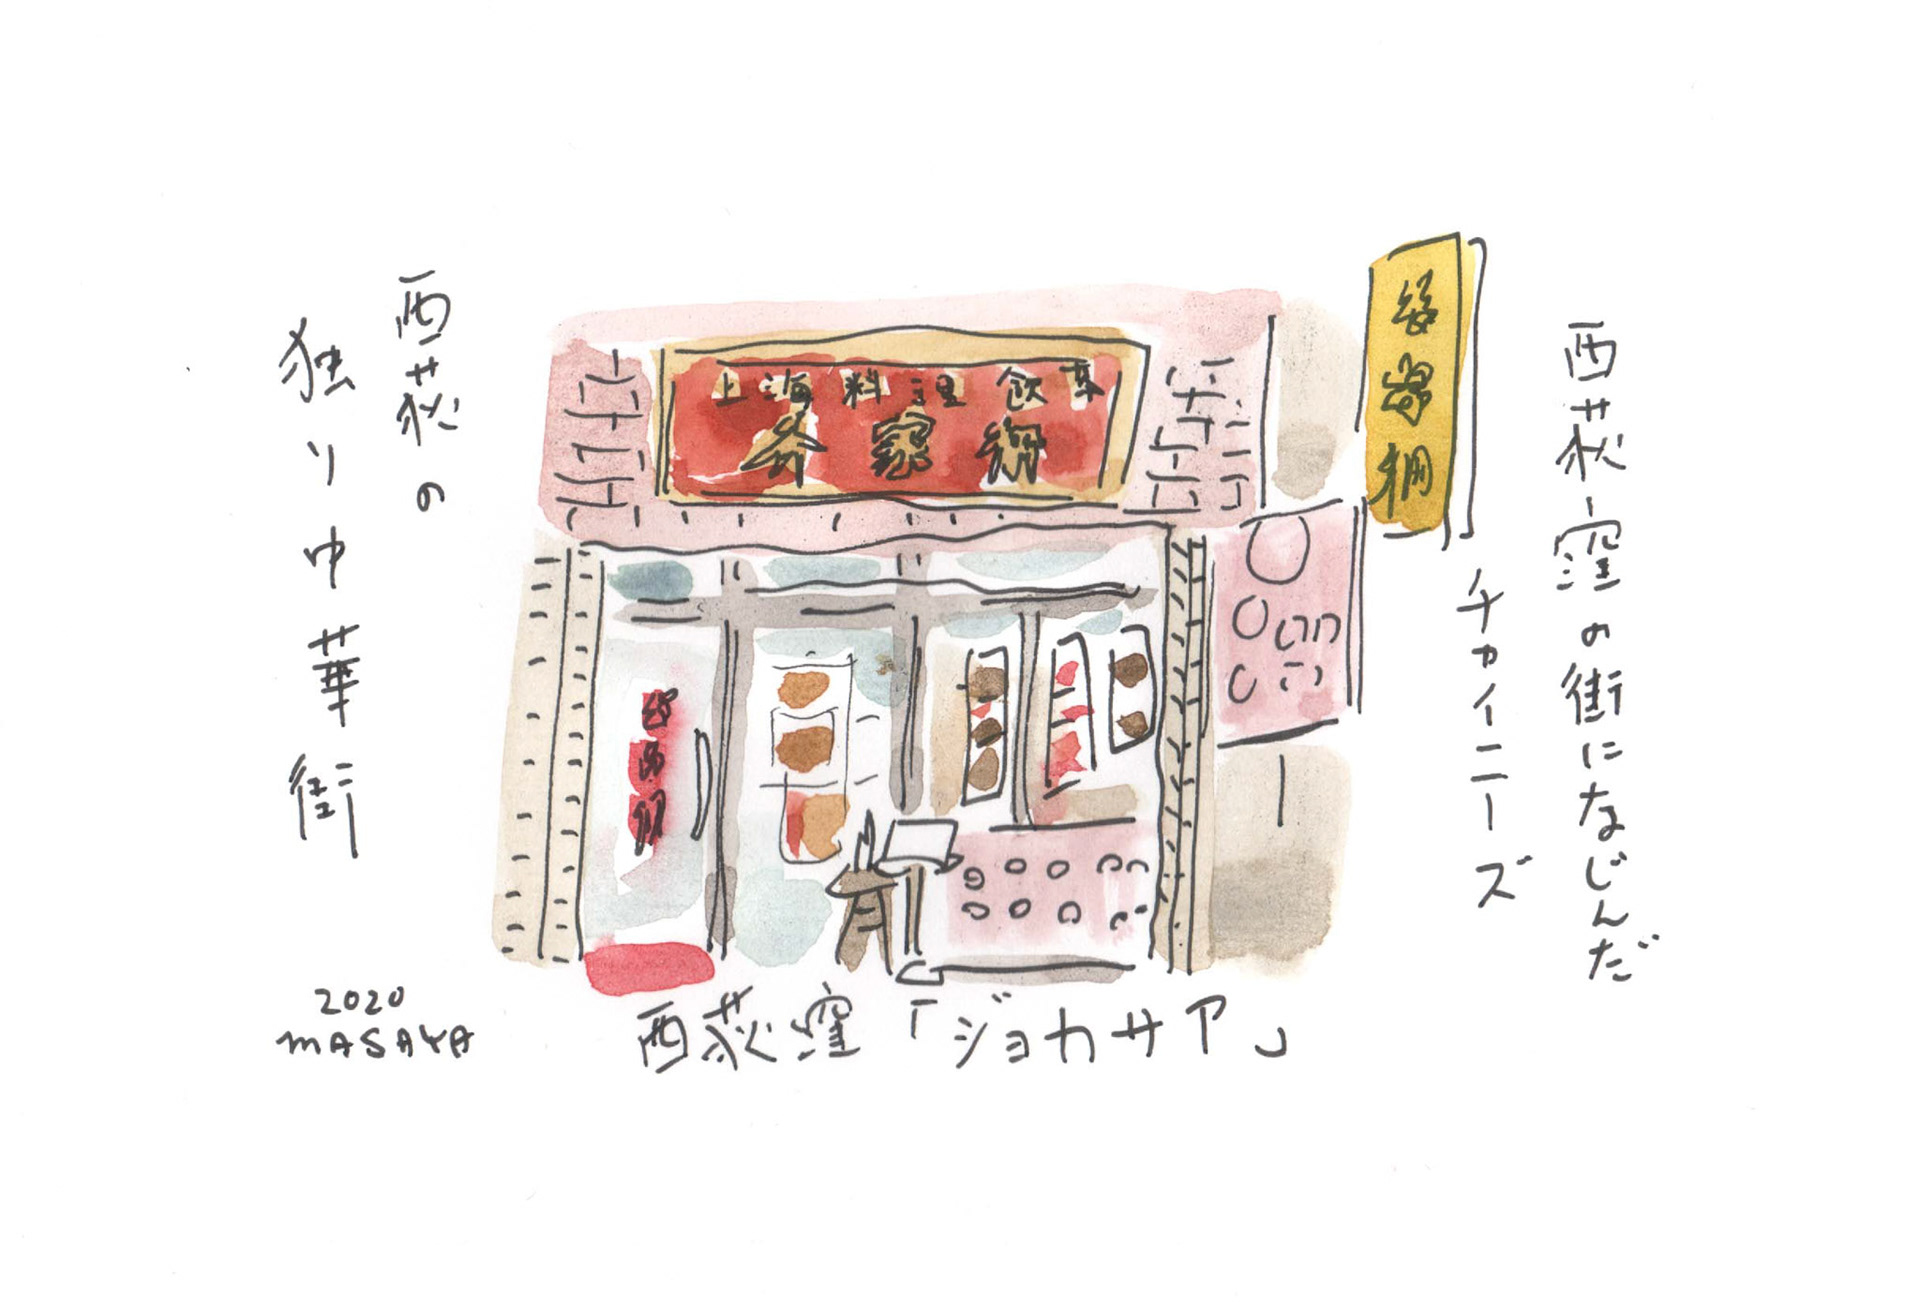 西荻窪の街になじんだ
チャイニーズ
西荻の
独り中華街
上海料理 飲茶
2020
MASAYA
西荻窪「ジョカサア」